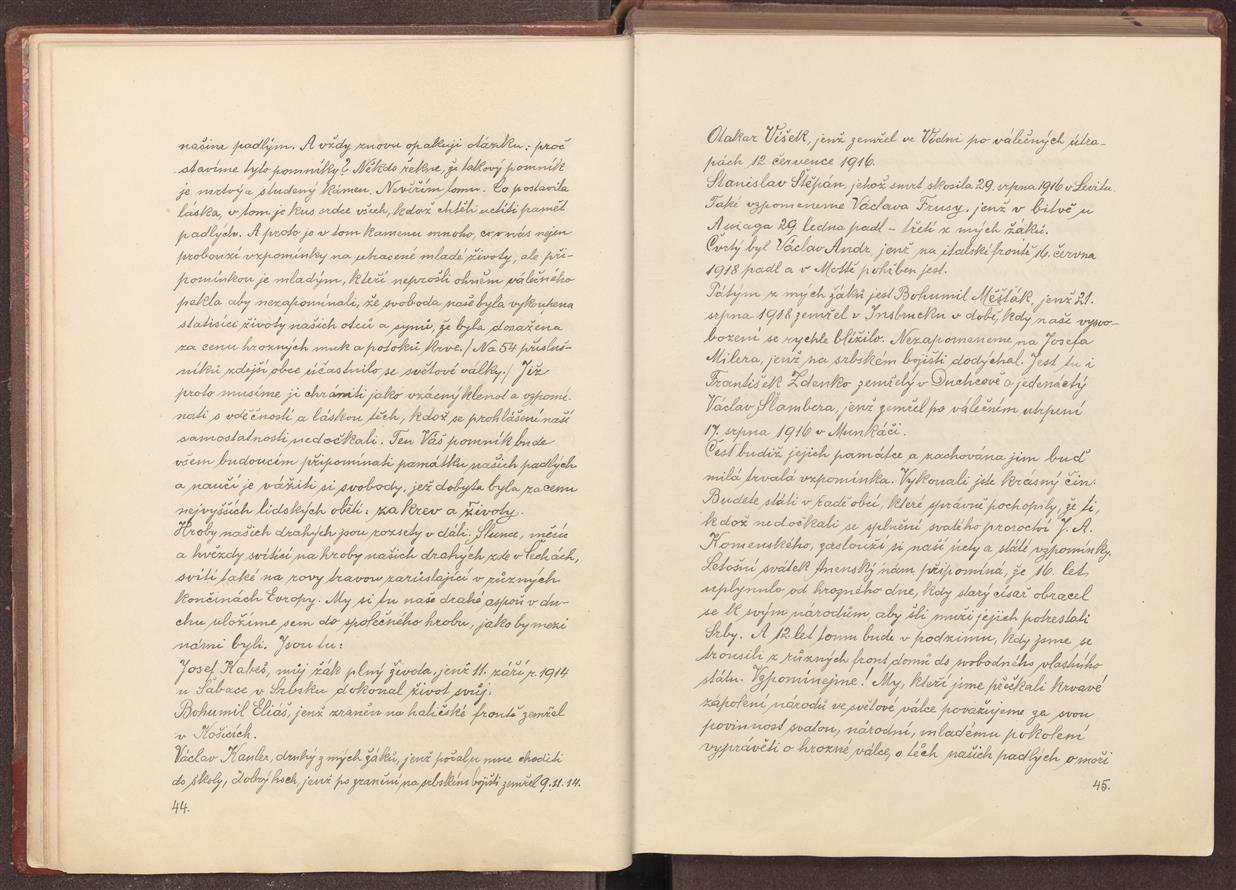 našim padlým. A vždy znovu opakuji otázku: proč
stavíme tyto pomníky? Někdo řekne, že takový pomník
je mrtvý a studený kámen. Nevěřím tomu. Co postavila
láska, v tom je kus srdce všech, kdož chtěli uctíti paměť
padlých. A proto je v tom kamenu mnoho, co v nás nejen
probouzí vzpomínky na uhaslé mladé životy, ale při-
pomínkou je mladým, kteří neprošli ohněm válečného
pekla aby nezapomínali, že svoboda naše byla vykoupena
statisíci životy našich otců a synů, že byla dosažena
za cenu hrozných muk a potoků krve. / Na 54 přísluš-
níků zdejší obce účastnilo se světové války. / Již
proto musíme ji chrániti jako vzácný klenot a vzpomí-
nati s vděčností a láskou těch, kdož se prohlášení naší
samostatnosti nedočkali. Ten Váš pomník bude
všem budoucím připomínati památku našich padlých
a naučí je vážiti si svobody, jež dobyta byla za cenu
nejvyšších lidských obětí: za krev a životy.
Hroby našich drahých jsou rozsety v dáli. Slunce, měsíc
a hvězdy svítící na hroby našich drahých zde v Čechách,
svítí také na rovy travou zarůstající v různých
končinách Evropy. My si tu naše drahé aspoň v du-
chu uložíme sem do společného hrobu, jako by mezi
námi byli. Jsou tu:
Josef Kabeš, můj žák plný života, jenž 11. září r. 1914
u Šabace v Srbsku dokonal život svůj.
Bohumil Eliáš, jenž zraněn na haličské frontě zemřel
v Košicích.
Václav Kanler, druhý z mých žáků, jenž počal u mne choditi
do školy, dobrý hoch, jenž po zranění na srbském bojišti zemřel 9. 11. 14.
44.
Otakar Víšek, jenž zemřel ve Vídni po válečných útra-
pách 12 července 1916.
Stanislav Štěpán, jehož smrt skosila 29. srpna 1916 v Levitu.
Také vzpomeneme Václava Trusy, jenž v bitvě u
Asiaga 29. ledna padl – třetí z mých žáků.
Čvrtý byl Václav Andr, jenž na italské frontě 16. června
1918 padl a v Mottě pohřben jest.
Pátým z mých žáků jest Bohumil Měšťák, jenž 21.
srpna 1918 zemřel v Insbrucku v době, kdy naše vysvo-
bození se rychle blížilo. Nezapomeneme na Josefa
Milera, jenž na srbském bojišti dodýchal. Jest tu i
František Zdenko zemřelý v Duchcově a jedenáctý
Václav Šlambera, jenž zemřel po válečném utrpení
17. srpna 1916 v Munkáči.
Čest budiž jejich památce a zachována jim buď
milá trvalá vzpomínka. Vykonali jste krásný čin.
Budete státi v řadě obcí, které správně pochopily, že ti,
kdož nedočkali se splnění svatého proroctví J. A.
Komenského, zaslouží si naší úcty a stálé vzpomínky.
Letošní svátek Anenský nám připomíná, že 16 let
uplynulo od hrozného dne, kdy starý císař obracel
se k svým národům, aby šli muži jejich potrestali
Srby. A 12 let tomu bude v podzimu, kdy jsme se
trousili z různých front domů do svobodného vlastního
státu. Vzpomínejme! My, kteří jsme přečkali krvavé
zápolení národů ve světové válce považujeme za svou
povinnost svatou, národní, mladému pokolení
vyprávěti o hrozné válce, o těch našich padlých, o moři
45.